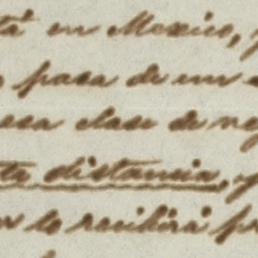 tá en Mexico, y
pasa de un
esa clase de ne
ta distancia, y
lo recibirá p